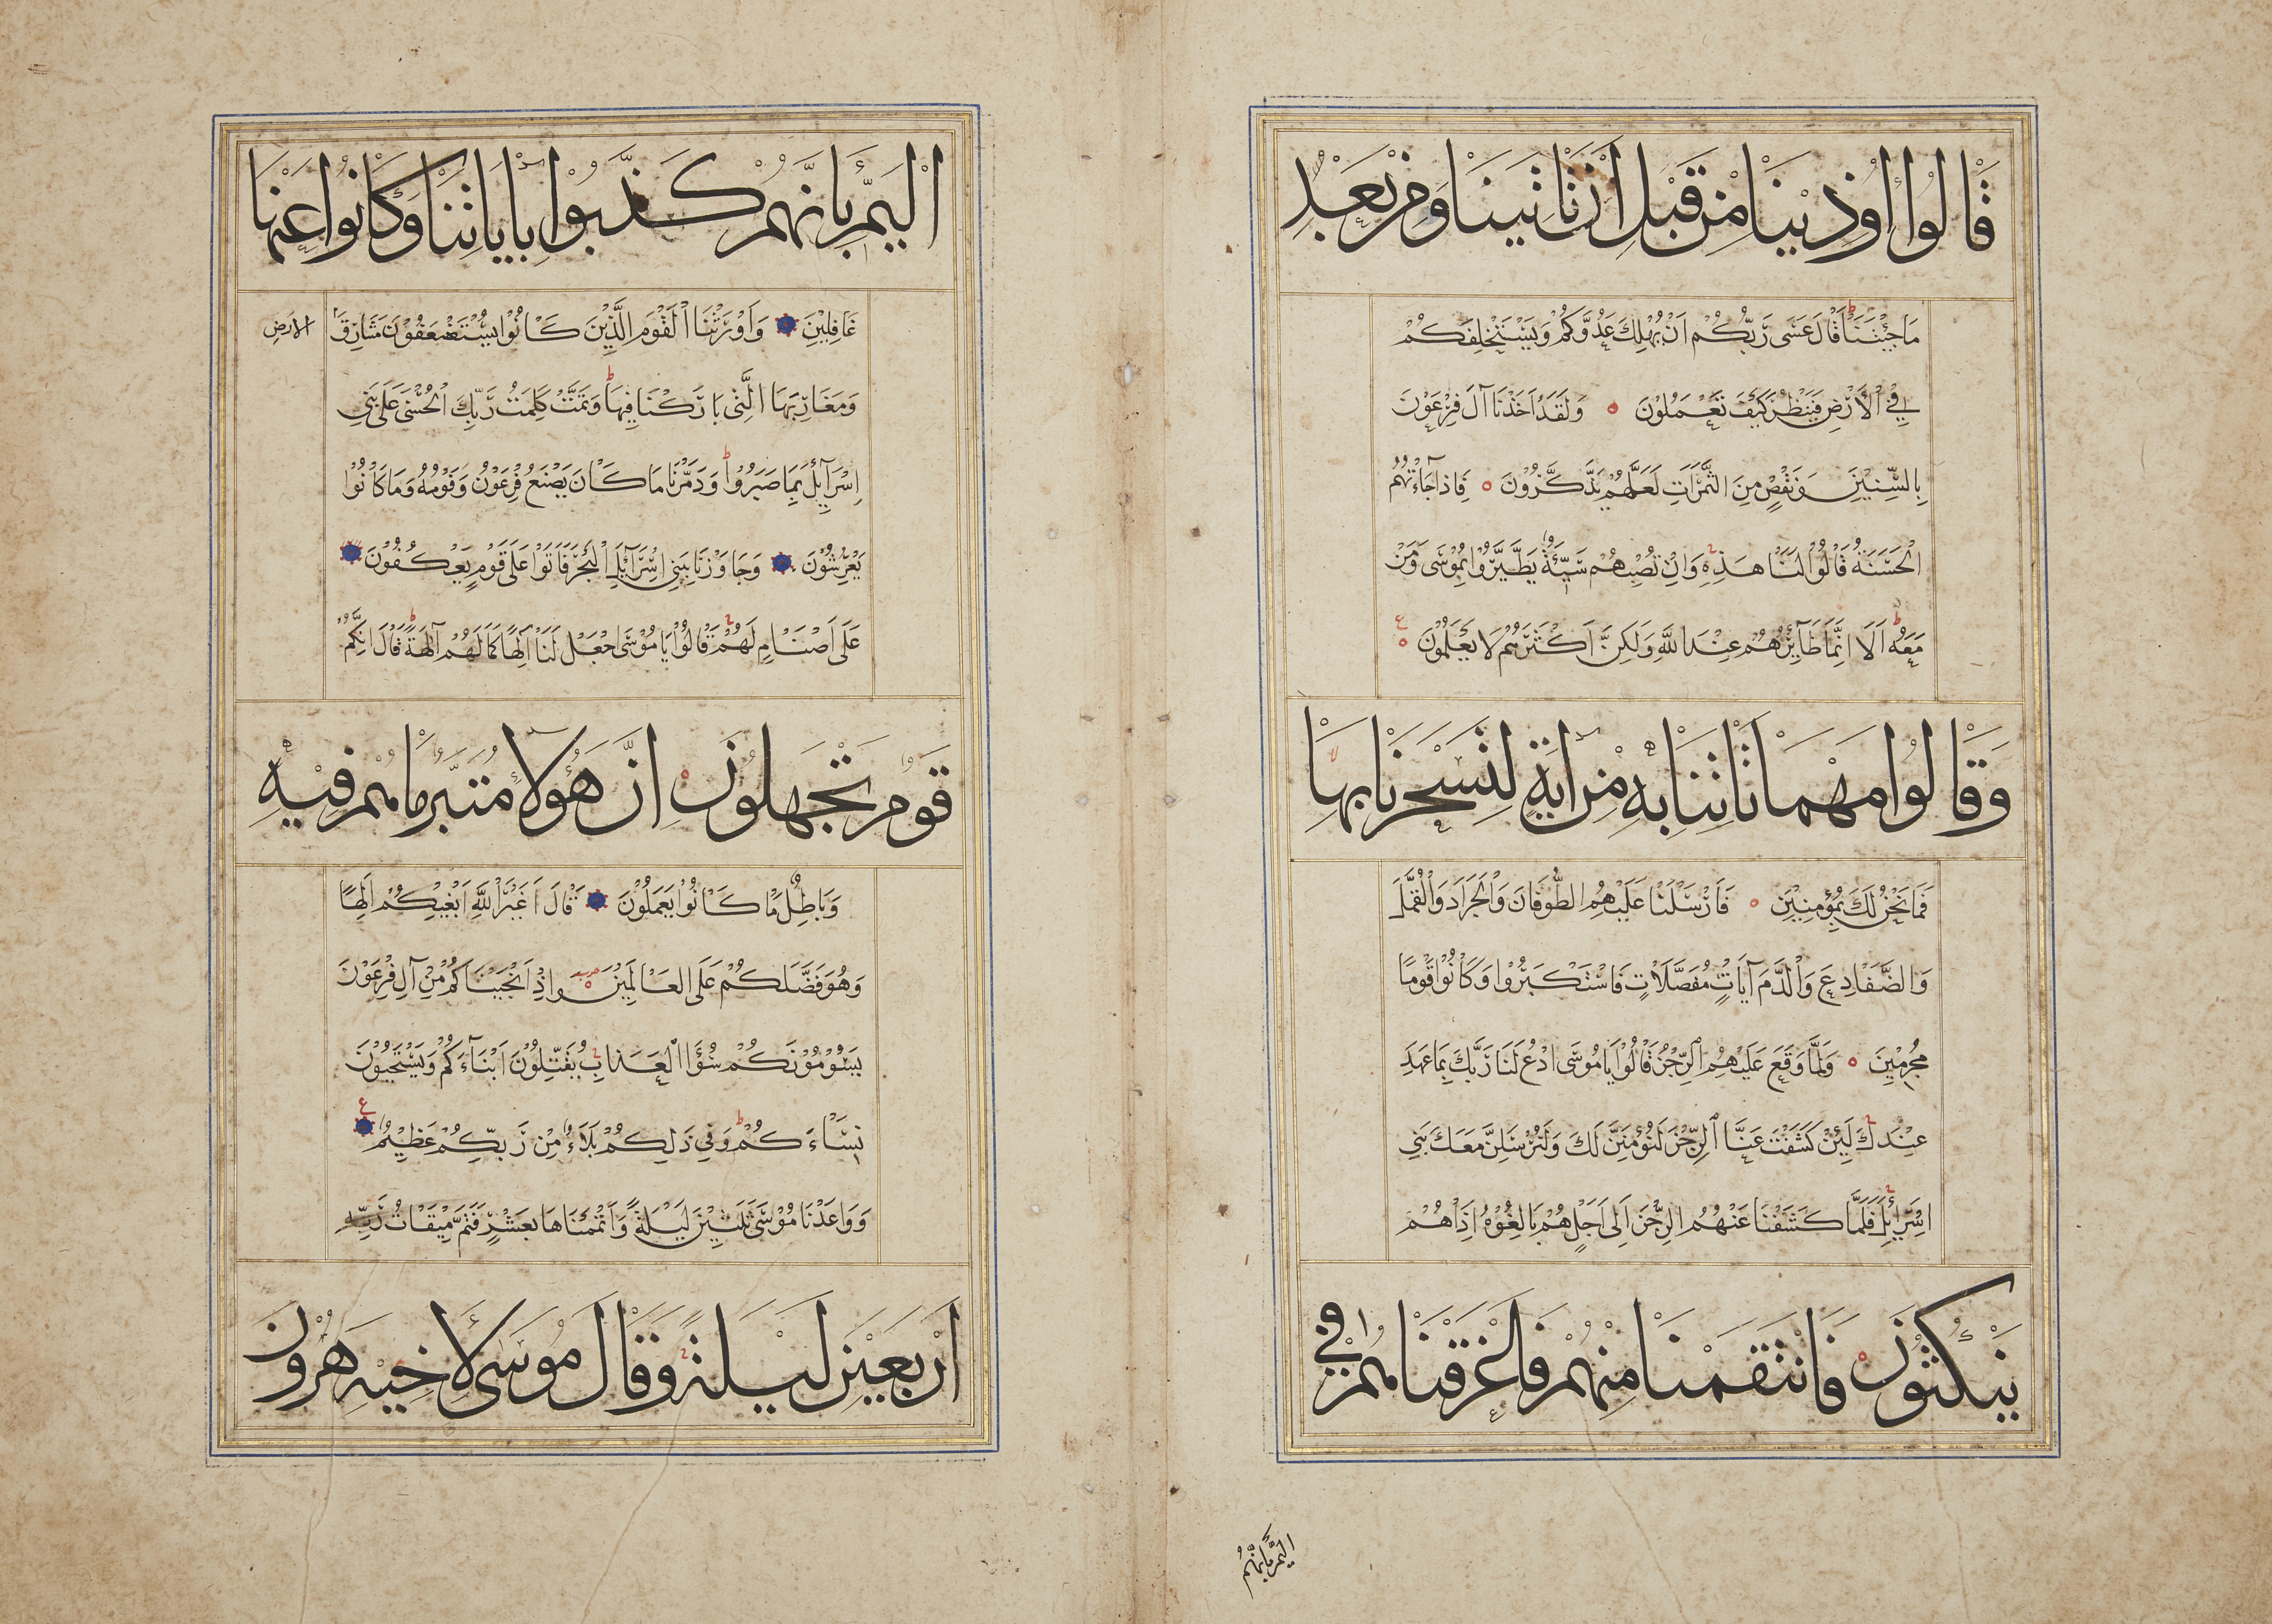 قَالُوا اُوذِينَا مِنْ قَبْلِ اَنْ تَاتِيَنَا وَمِنْ بَعْدِ
مَا جِئْتَنَا قَالَ عَسَى رَبُّكُمْ اَنْ يُهْلِكَ عَدُوَّكُمْ وَيَسْتَخْلِفَكُمْ
فِي الْاَرْضِ فَيَنْظُرَ كَيْفَ تَعْمَلُوْنَ وَلَقَدْ اَخَذْنَا آلَ فِرْعَوْنَ
بِالسِّنِيْنَ وَنَقْصٍ مِنَ الثَّمَرَاتِ لَعَلَّهُمْ يَذَّكَّرُوْنَ فَاِذَا جَآءَتْهُمُ
الْحَسَنَةُ قَالُوْا لَنَا هَذِهِ وَاِنْ تُصِبْهُمْ سَيِّئَةٌ يَطَّيَّرُوْا بِمُوْسَى وَمَنْ
مَعَهُ اَلَا اِنَّمَا طَآئِرُهُمْ عِنْدَ اللَّهِ وَلَكِنَّ اَكْثَرَهُمْ لَا يَعْلَمُوْنَ ع
وَقَالُوا مَهْمَا تَاتِنَا بِهِ مِنْ اٰيَةٍ لِتَسْحَرَنَا بِهَا
فَمَا نَحْنُ لَكَ بِمُؤْمِنِيْنَ فَاَرْسَلْنَا عَلَيْهِمُ الطُّوْفَانَ وَالْجَرَادَ وَالْقُمَّلَ
وَالضَّفَادِعَ وَالْدَّمَ آيَاتٍ مُفَصَّلَاتٍ فَاسْتَكْبَرُوْا وَكَانُوْا قَوْمًا
مُجْرِمِيْنَ وَلَمَّا وَقَعَ عَلَيْهِمُ الرِّجْزُ قَالُوْا يَا مُوْسَى ادْعُ لَنَا رَبَّكَ بِمَا عَهِدَ
عِنْدَكَ لَئِنْ كَشَفْتَ عَنَّا الرِّجْزَ لَنُؤْمِنَنَّ لَكَ وَلَنُرْسِلَنَّ مَعَكَ بَنِي
اِسْرَآئِيْلَ فَلَمَّا كَشَفْنَا عَنْهُمُ الرِّجْزَ اِلَى اَجَلٍ هُمْ بَالِغُوْهُ اِذَا هُمْ
يَنْكُثُوْنَ فَانْتَقَمْنَا مِنْهُمْ فَاَغْرَقْنَاهُمْ فِي
اليَمِّ بِاَنَّهُمْ
الْيَمِّ بِاَنَّهُمْ كَذَّبُوْا بِاٰيَاتِنَا وَكَانُوْا عَنْهَا
غَافِلِيْنَ وَاَوْرَثْنَا الْقَوْمَ الَّذِيْنَ كَانُوْا يُسْتَضْعَفُوْنَ مَشَارِقَ الارض
وَمَغَارِبَهَا الَّتِى بَارَكْنَا فِيْهَا وَتَمَّتْ كَلِمَتُ رَبِّكَ الْحُسْنَى عَلَى بَنِي
اِسْرَآئِيْلَ بِمَا صَبَرُوْا وَدَمَّرْنَا مَا كَانَ يَصْنَعُ فِرْعَوْنُ وَقَوْمُهُ وَمَا كَانُوْا
يَعْرِشُوْنَ وَجَاوَزْنَا بِبَنِي اِسْرَآئِيْلَ الْبَحْرَ فَاَتَوْا عَلَى قَوْمٍ يَعْكُفُوْنَ
عَلَى اَصْنَامٍ لَهُمْ قَالُوْا يَا مُوْسَى اجْعَلْ لَنَا اِلَهًا كَمَا لَهُمْ آلِهَةٌ قَالَ اِنَّكُمْ
قَوْمٌ تَجْهَلُونَ اِنَّ هَؤُلَآ مُتَبَّرٌ مَا هُمْ فِيْهِ
وَبَاطِلٌ مَا كَانُوْا يَعْمَلُوْنَ قَالَ اَغَيْرَ اللَّهِ اَبْغِيْكُمْ اِلَهًا
وَهُوَ فَضَّلَكُمْ عَلَى الْعَالَمِيْنَ وَاِذْ اَنْجَيْنَاكُمْ مِنْ آلِ فِرْعَوْنَ
يَسُوْمُوْنَكُمْ سُوْءَ الْعَذَابِ يُقَتِّلُوْنَ اَبْنَآءَكُمْ وَيَسْتَحْيُوْنَ
نِسَآءَكُمْ وَفِي ذَلِكُمْ بَلَاءٌ مِنْ رَبِّكُمْ عَظِيْمٌ ع
وَوَاعَدْنَا مُوْسَى ثَلَثِيْنَ لَيْلَةً وَاَتْمَمْنَاهَا بِعَشْرٍ فَتَمَّ مِيْقَاتُ رَبِّهِ
اَرْبَعِيْنَ لَيْلَةً وَقَالَ مُوسَى لِاَخِيْهِ هٰرُوْنَ